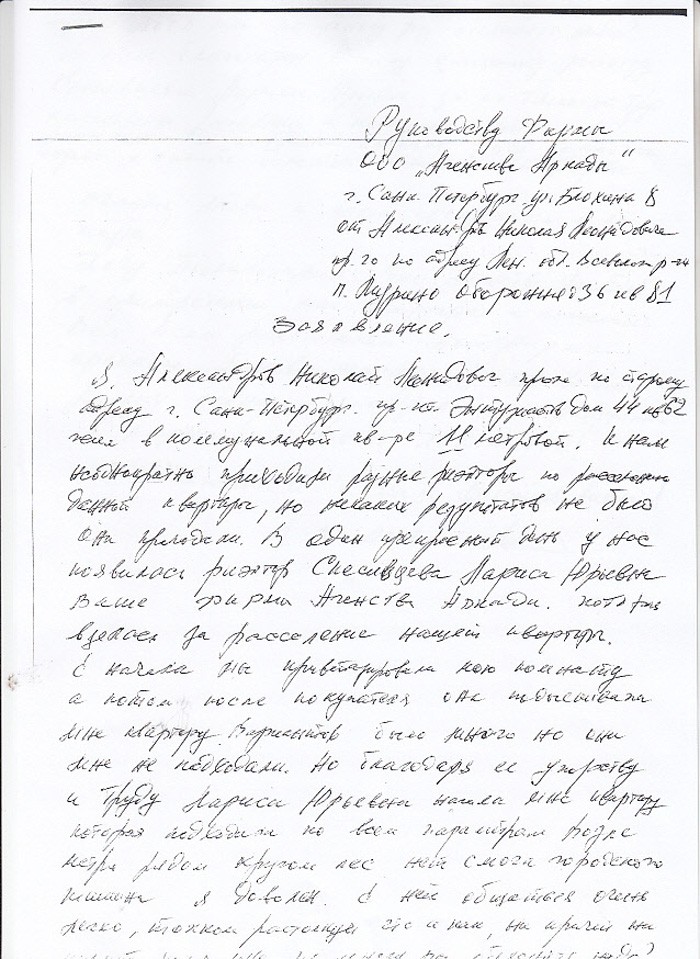 Руководству Фирмы
ООО "Агенства Аркады"
г. Санк-Петербург ул. Блохина 8
от Александров Николая Леонидовича
пр. го по адресу Лен. обл. Всеволож р-он
п. Кудрино Оборонная 36 кв 81
Заявление.
Я. Александров Николай Леонидович прож по старому
адресу г. Санк-Петербург. пр-кт. Энтузиастов дом 44 кв 62
в коммунальной кв-ре 11 метровой. К нам
неоднократно приходили разные риэлторы по
данной квартиры, но никаких результатов не было
они пропадали. В один прекрасный день у нас
появилась риэлтор Спесивцева Лариса Юрьевна
Ваше фирма Агенства Аркади. которая
взялась за расселение нашей квартиры.
С начала мы приватизировали мою комнату
а потом после покупателя они подыскивали
мне квартиру Вариантов было много но они
мне не подходили. Но благодаря ее упорству
и Труду Лариса Юрьевна нашла мне квартиру
которая подходила по всем параметрам возле
метро рядом кругом лес нет смога городского
тишина я доволен. С ней общаться очень
легко, что и как,